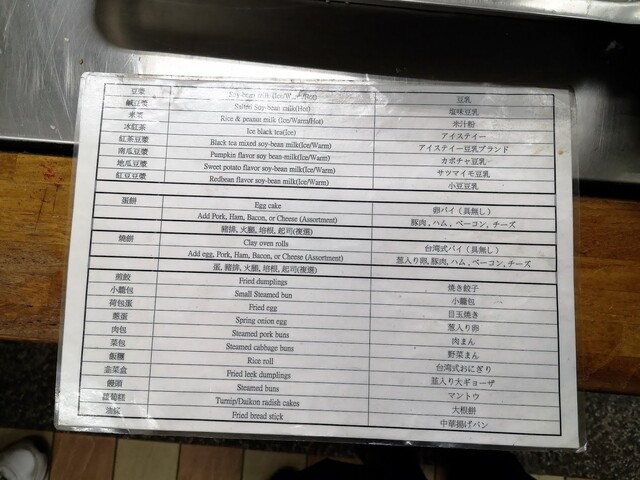 豆漿 Soy-bean milk(Ice/Warm/Hot) 豆乳
鹹豆漿 Salted Soy-bean milk(Hot) 塩味豆乳
米漿 Rice & peanut milk (Ice/Warm/Hot) 米汁粉
冰紅茶 Ice black tea(Ice) アイスティー
紅茶豆漿 Black tea mixed soy-bean milk(Ice/Warm) アイスティー豆乳ブランド
南瓜豆漿 Pumpkin flavor soy bean-milk(Ice/Warm) カボチャ豆乳
地瓜豆漿 Sweet potato flavor soy-bean milk(Ice/Warm) サツマイモ豆乳
紅豆豆漿 Redbean flavor soy-bean milk(Ice/Warm) 小豆豆乳
蛋餅 Egg cake 卵パイ（具無し）
Add Pork, Ham, Bacon, or Cheese (Assortment) 豚肉，ハム，ベーコン，チーズ
豬排, 火腿, 培根, 起司(複選)
燒餅 Clay oven rolls 台湾式パイ（具無し）
Add egg, Pork, Ham, Bacon, or Cheese (Assortment) 葱入り卵, 豚肉, ハム, ベーコン, チーズ
蛋, 豬排, 火腿, 培根, 起司(複選)
煎餃 Fried dumplings 焼き餃子
小籠包 Small Steamed bun 小籠包
荷包蛋 Fried egg 目玉焼き
蔥蛋 Spring onion egg 葱入り卵
肉包 Steamed pork buns 肉まん
菜包 Steamed cabbage buns 野菜まん
飯糰 Rice roll 台湾式おにぎり
韭菜盒 Fried leek dumplings 韮入り大ギョーザ
饅頭 Steamed buns マントウ
蘿蔔糕 Turnip/Daikon radish cakes 大根餅
油條 Fried bread stick 中華揚げパン